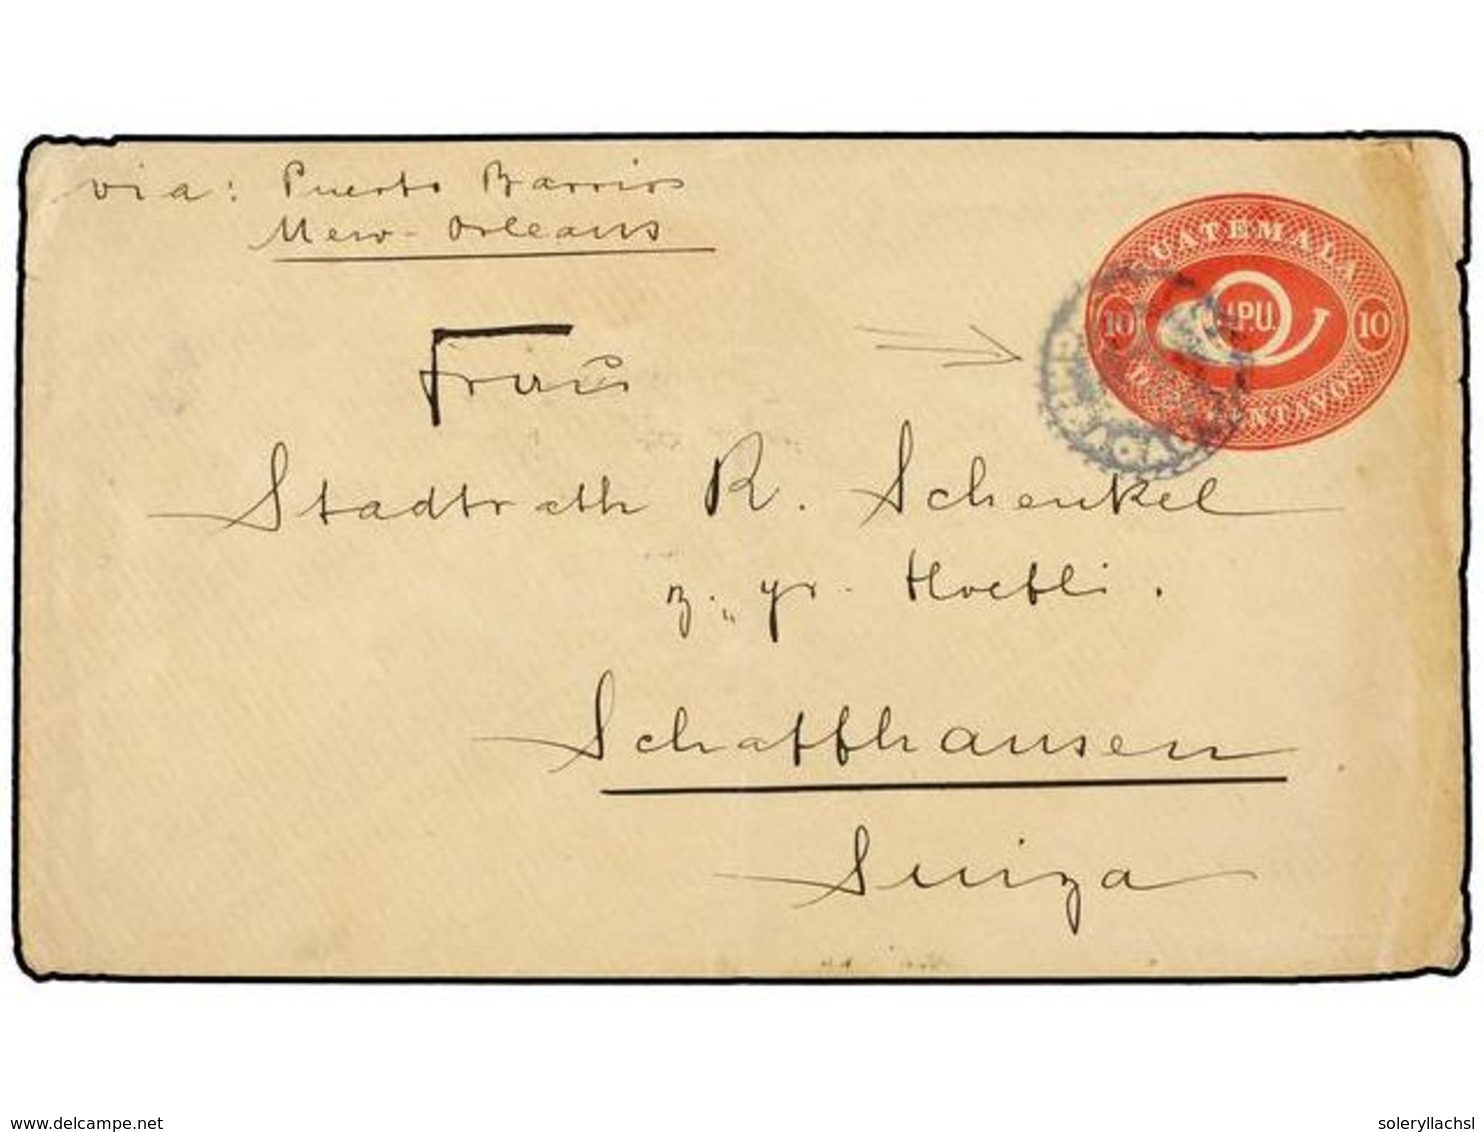 via: Puerto Barrios
New-Orleans
GUATEMALA
10 U.P.U. 10
DIEZ CENTAVOS
Frau
Stadtrath R. Schenkel
z. "
Schaffhausen
Suiza
delcampe.net
soleryllachsl